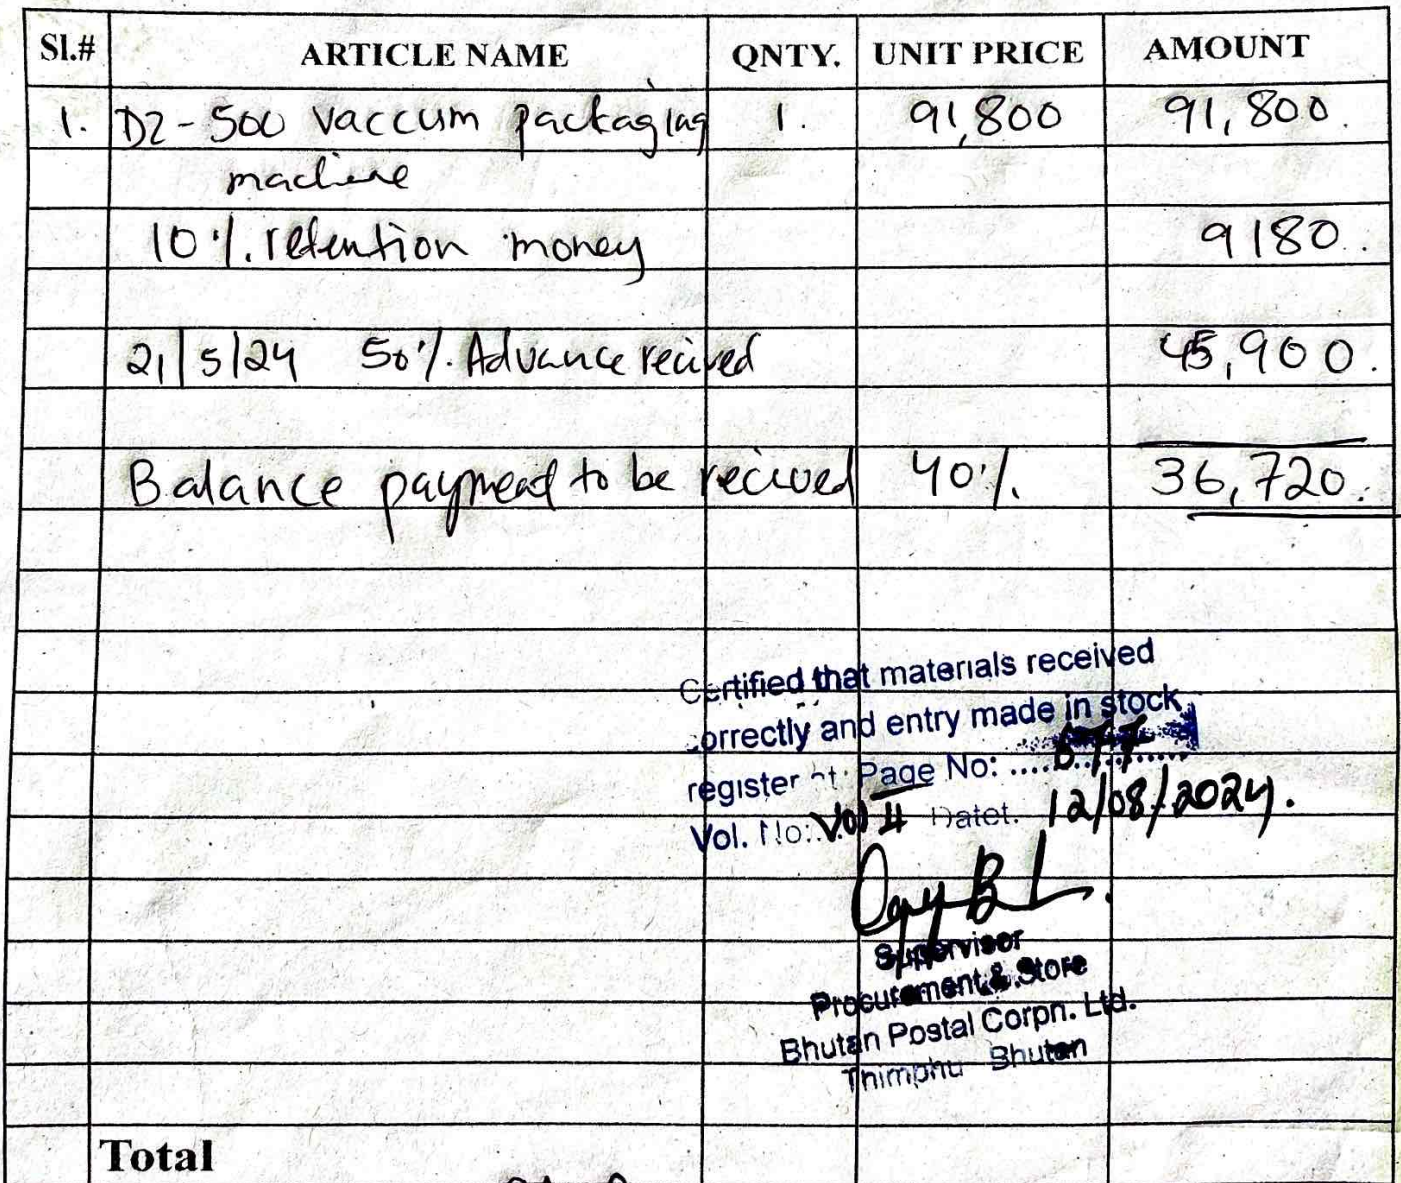 Sl.# ARTICLE NAME QNTY. UNIT PRICE AMOUNT
1. DZ-500 vaccum packaging 1. 91,800 91,800.
machine
10%. retention money 9180.
21/5/24 50%. Advance recived 45,900.
Balance payment to be recived 40%. 36,720.
Certified that materials received
correctly and entry made in stock
register at Page No: ....
Vol. No: Vol II Datet. 12/08/2024.
Supervisor
Procurement & Store
Bhutan Postal Corpn. Ltd.
Thimphu Bhutan
Total